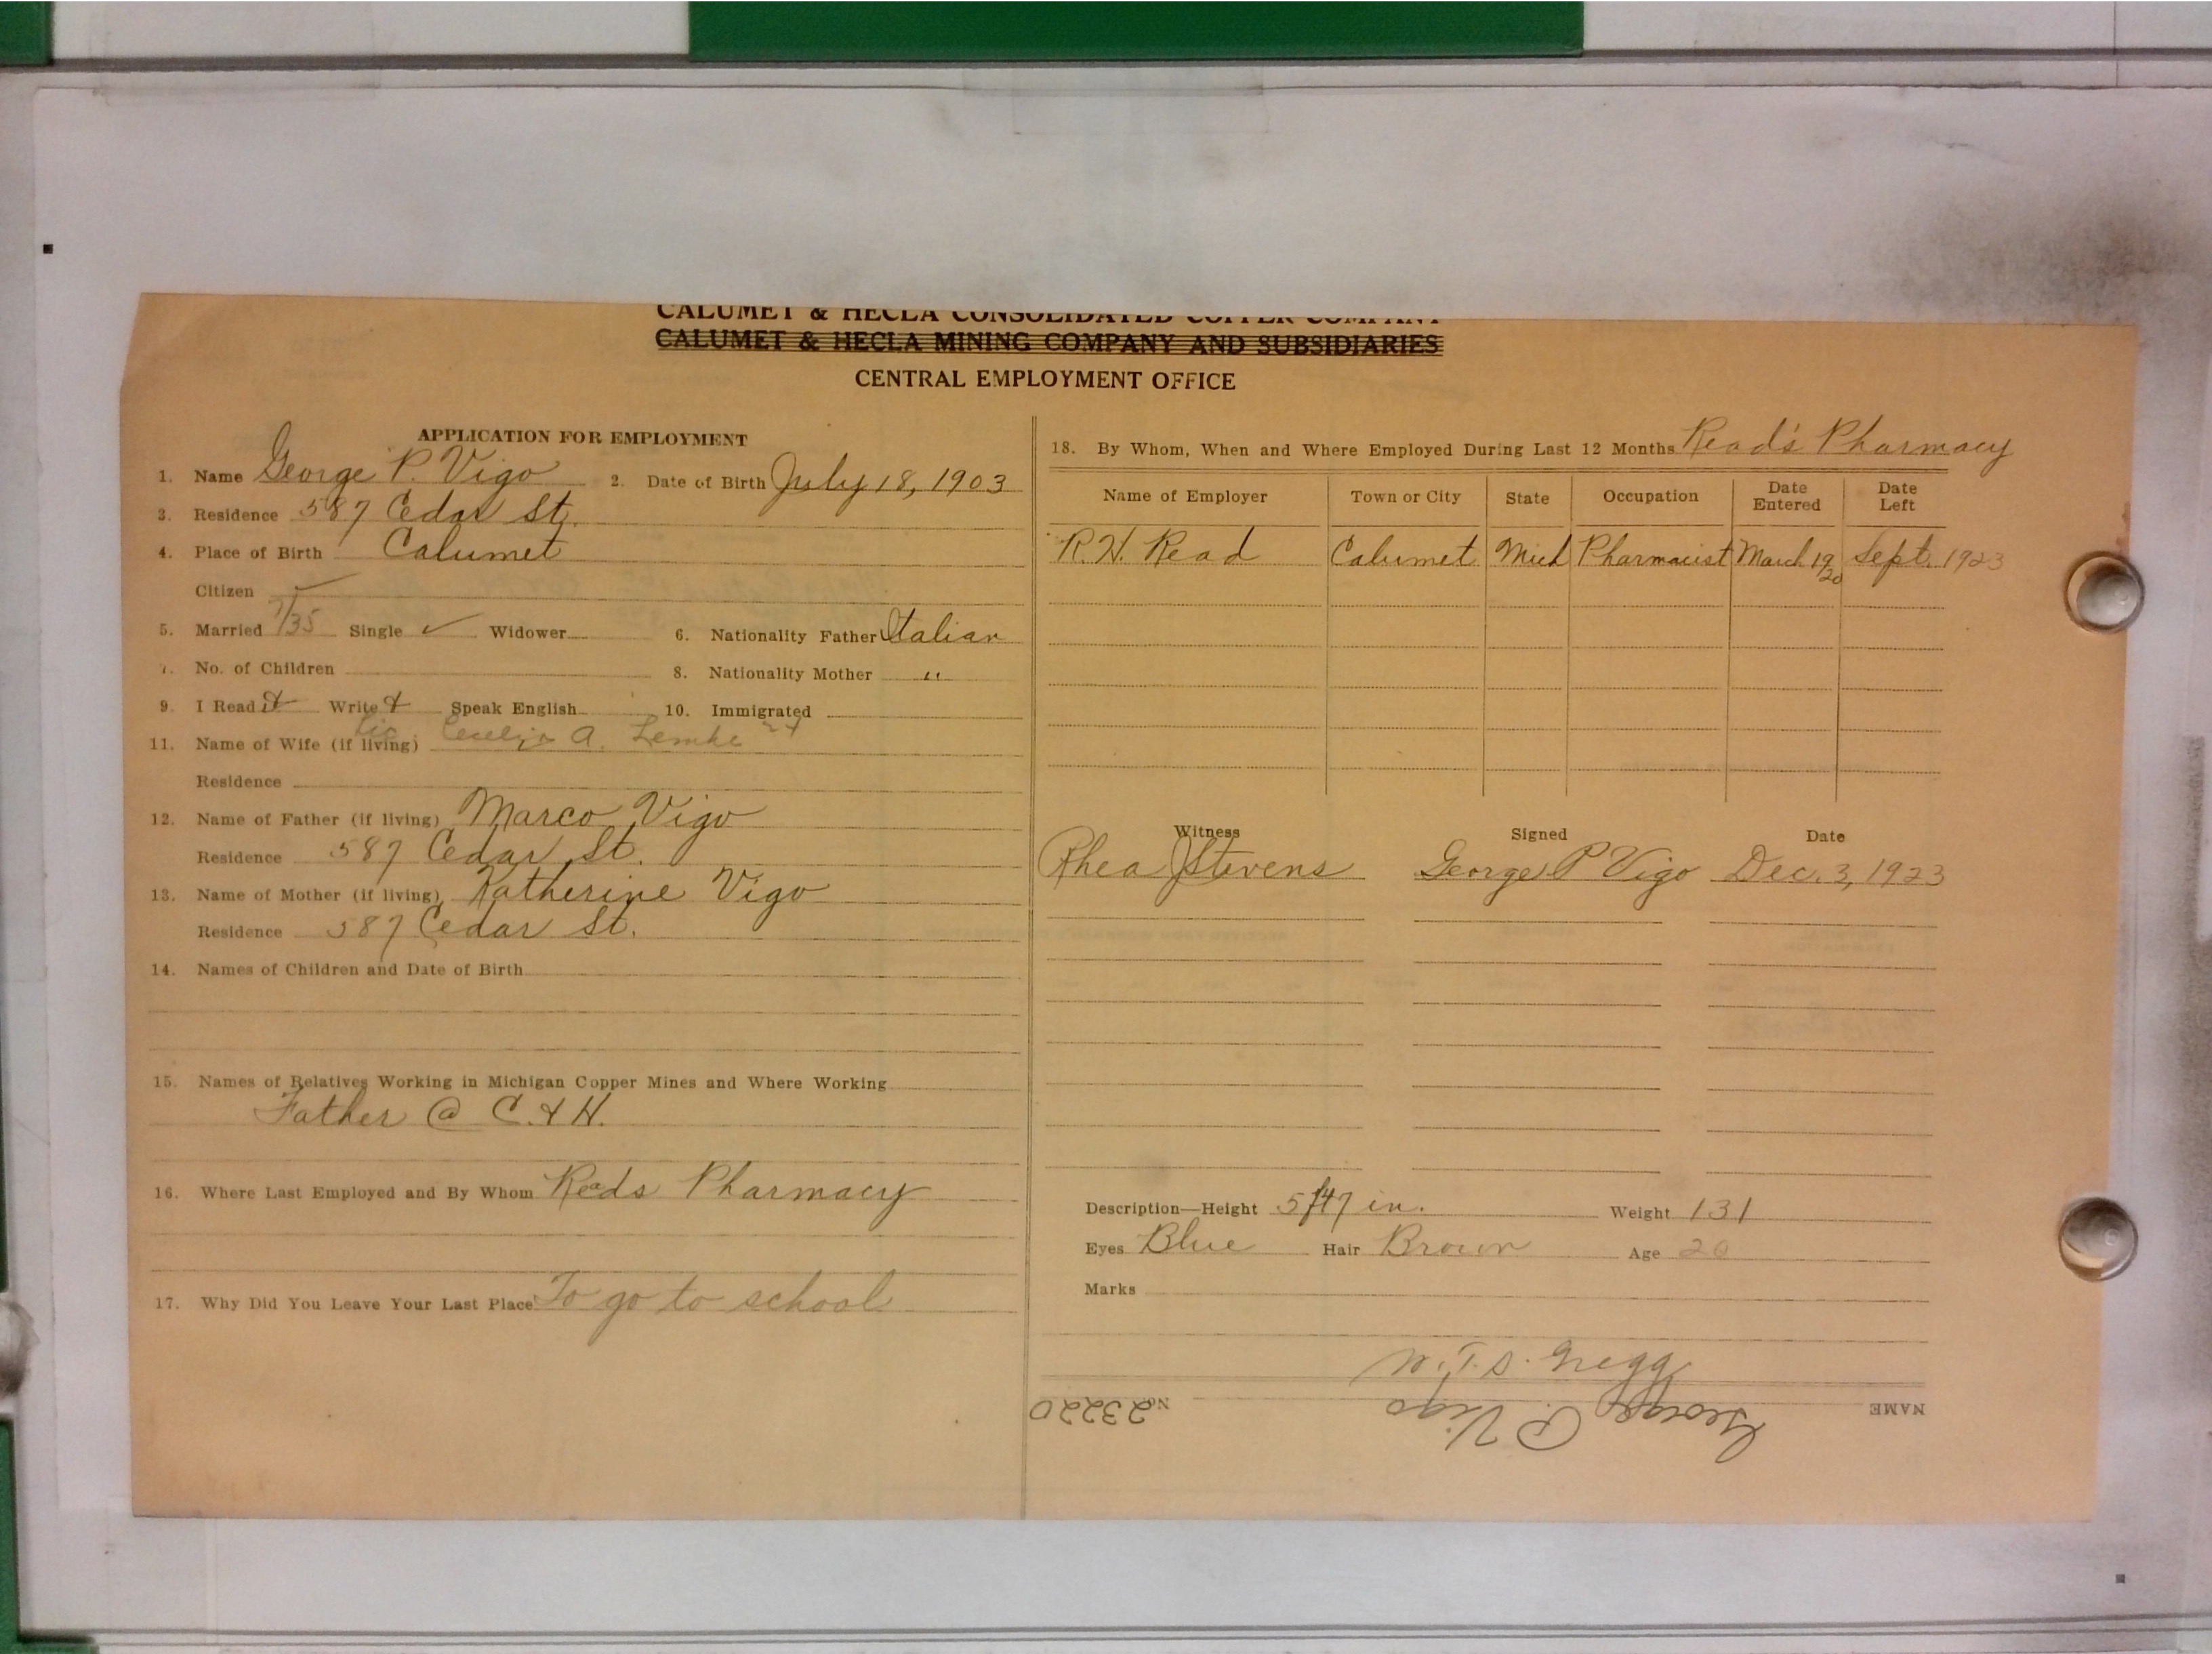 CALUMET & HECLA CONSOLIDATED COPPER COMPANY
CALUMET & HECLA MINING COMPANY AND SUBSIDIARIES
CENTRAL EMPLOYMENT OFFICE
APPLICATION FOR EMPLOYMENT
1. Name George P. Vigo 2. Date of Birth July 18, 1903
3. Residence 587 Cedar St.
4. Place of Birth Calumet
Citizen ✓
5. Married 7/35 Single ✓ Widower 6. Nationality Father Italian
7. No. of Children 8. Nationality Mother "
9. I Read Write Speak English 10. Immigrated
11. Name of Wife (if living) Lic Cecelia A. Lemke 24
Residence
12. Name of Father (if living) Marco Vigo
Residence 587 Cedar St.
13. Name of Mother (if living) Katherine Vigo
Residence 587 Cedar St.
14. Names of Children and Date of Birth
15. Names of Relatives Working in Michigan Copper Mines and Where Working
Father @ C. & H.
16. Where Last Employed and By Whom Reads Pharmacy
17. Why Did You Leave Your Last Place To go to school
18. By Whom, When and Where Employed During Last 12 Months Read's Pharmacy
Name of Employer Town or City State Occupation Date Entered Date Left
R. H. Read Calumet Mich Pharmacist March 1920 Sept. 1923
Witness Signed Date
Rhea J Stevens George P Vigo Dec. 3, 1923
Description—Height 5ft 7 in. Weight 131
Eyes Blue Hair Brown Age 20
Marks
W. T. S. Gregg
NAME George P. Vigo No. 23220